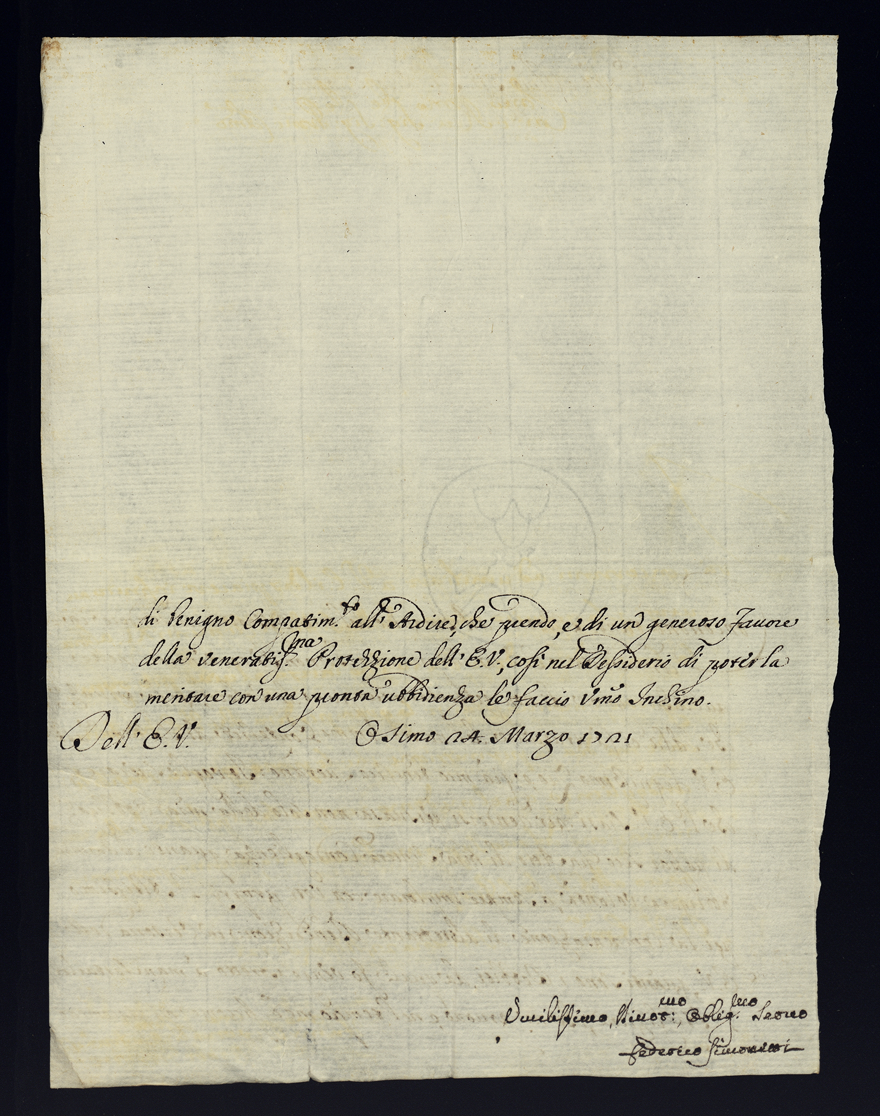 di benigno Compatim.to all' Ardire, che prendo, e di un generoso favore
della veneratiss.ma Protezzione dell' E.V., così nel Desiderio di poter la
meritare con una pronta ubbidienza le faccio Vmo Inchino.
Dell' E. V. Osimo 24. Marzo 1721
Umilissimo, Divot:mo, Oblig.mo Servo
Federico Simonetti